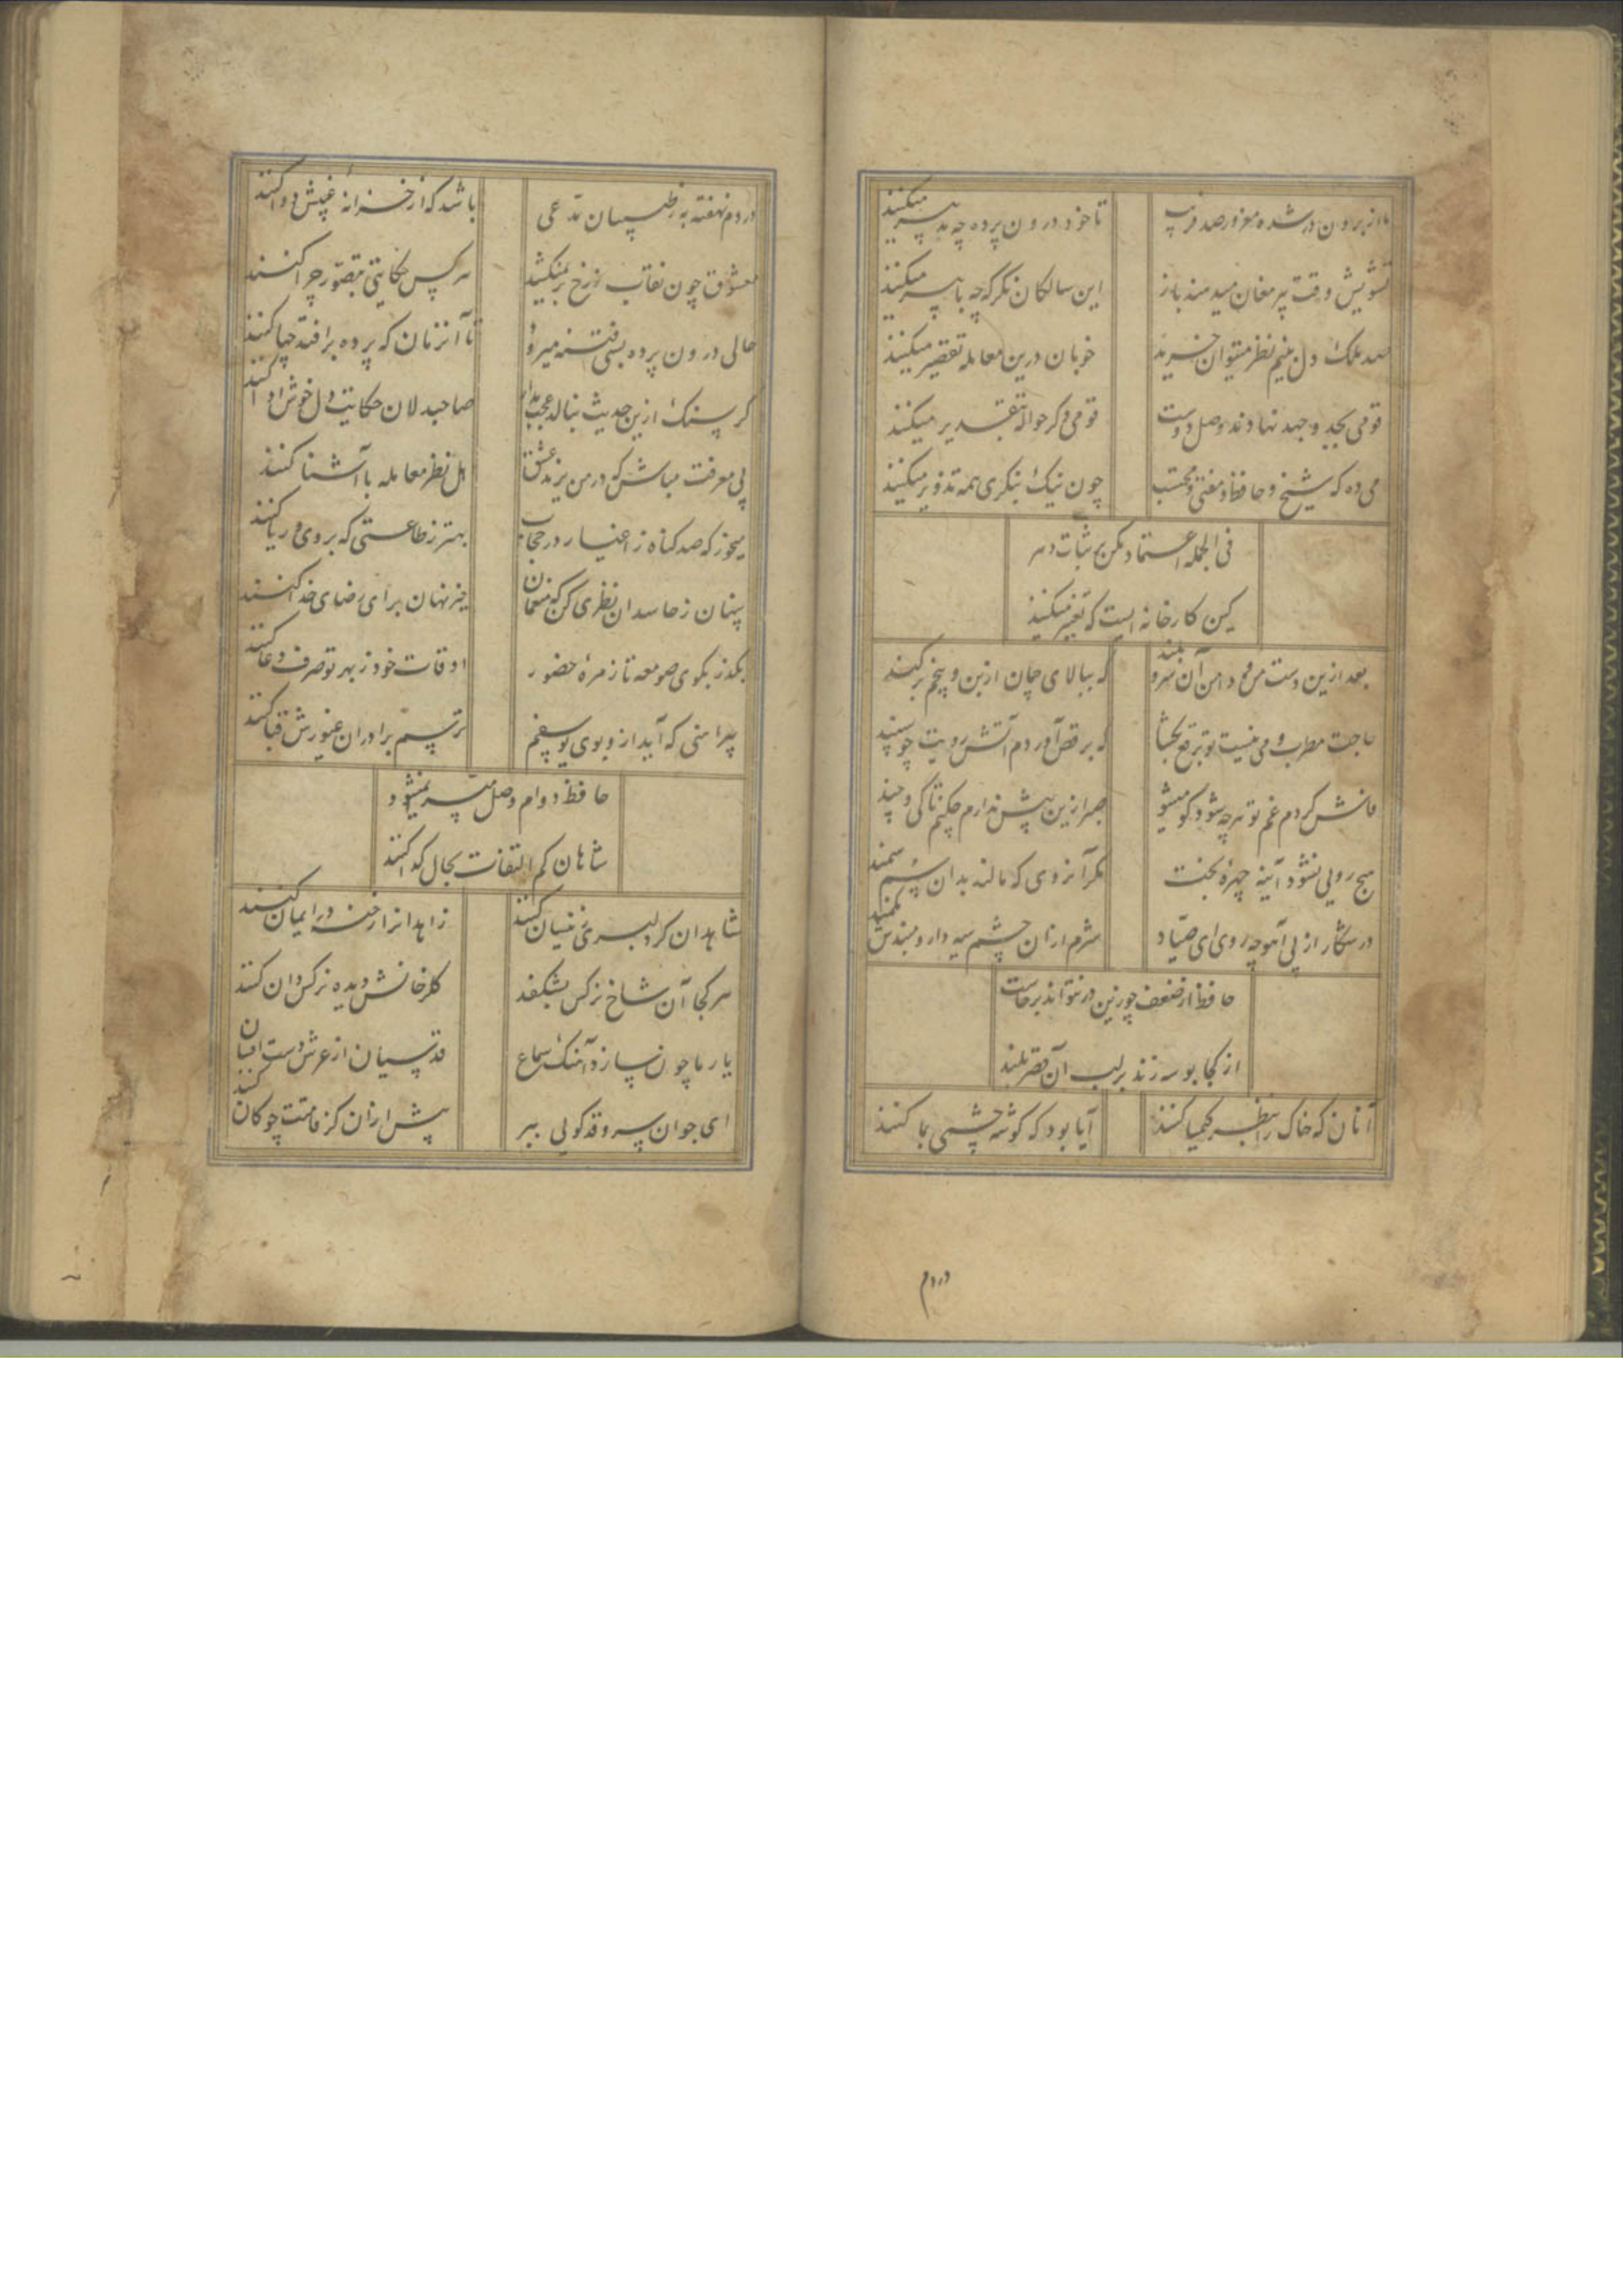 ما از برون در شده مغرور صد فریب تا خود درون پرده چه تدبیر میکنند
تشویش وقت پیر مغان میدهند باز این سالکان نکر که چه با پیر میکنند
صد ملک دل بنیم نظر میتوان خرید خوبان درین معامله تقصیر میکنند
قومی بجد و جهد نهادند وصل دوست قومی دکر حواله بتقدیر میکنند
می ده که شیخ و حافظ و مفتی و محتسب چون نیک بنکری همه تذویر میکنند
فی الجمله اعتماد مکن بر ثبات دهر
کین کارخانه ایست که تغییر میکنند
بعد ازین دست من و دامن آن سرو بلند که ببالای چمان از بن و بیخم برکند
حاجت مطرب و می نیست تو برقع بکشا که برقص آوردم آتش رویت چو سپند
فاش کردم غم تو هرچه شود کو میشو صبر ازین بیش ندارم چکنم تا کی و چند
هیچ رویی نشود آینه چهره بخت مکر آنروی که مالند بدان سم سمند
در شکار از پی آهوچه روی ای صیاد شرم ازان چشم سیه دار و مبندش بکمند
حافظ از ضعف چو زین در نتواند برخاست
از کجا بوسه زند بر لب آن قصر بلند
آنان که خاک را بنظر کیمیا کنند آیا بود که کوشه چشمی بما کنند
دردم
دردم نهفته به ز طبیبان مدعی باشد که از خزانه غیبش دوا کنند
معشوق چون نقاب ز رخ برنمیکشد هر کس حکایتی بتصور چرا کنند
حالی درون پرده بسی فتنه میرود تا آنزمان که پرده برافتد چها کنند
کر سنک ازین حدیث بنالد عجب مدار صاحبدلان حکایت دل خوش ادا کنند
بی معرفت مباش که در من یزید عشق اهل نظر معامله با آشنا کنند
میخور که صد کناه ز اغیار در حجاب بهتر ز طاعتی که بروی و ریا کنند
پنهان ز حاسدان نظری کن که منعمان خیر نهان برای رضای خدا کنند
بکذر بکوی صومعه تا زمره حضور اوقات خود ز بهر تو صرف دعا کنند
پیراهنی که آید ازو بوی یوسفم ترسم برادران غیورش قبا کنند
حافظ دوام وصل میسر نمیشود
شاهان کم التفات بحال کدا کنند
شاهدان کر دلبری زینسان کنند زاهدانرا رخنه در ایمان کنند
هر کجا آن شاخ نرکس بشکفد کلرخانش دیده نرکس دان کنند
یار ما چون سازد آهنک سماع قدسیان از عرش دست افشان کنند
ای جوان سرو قد کویی ببر پیش ازان کز قامتت چوکان کنند